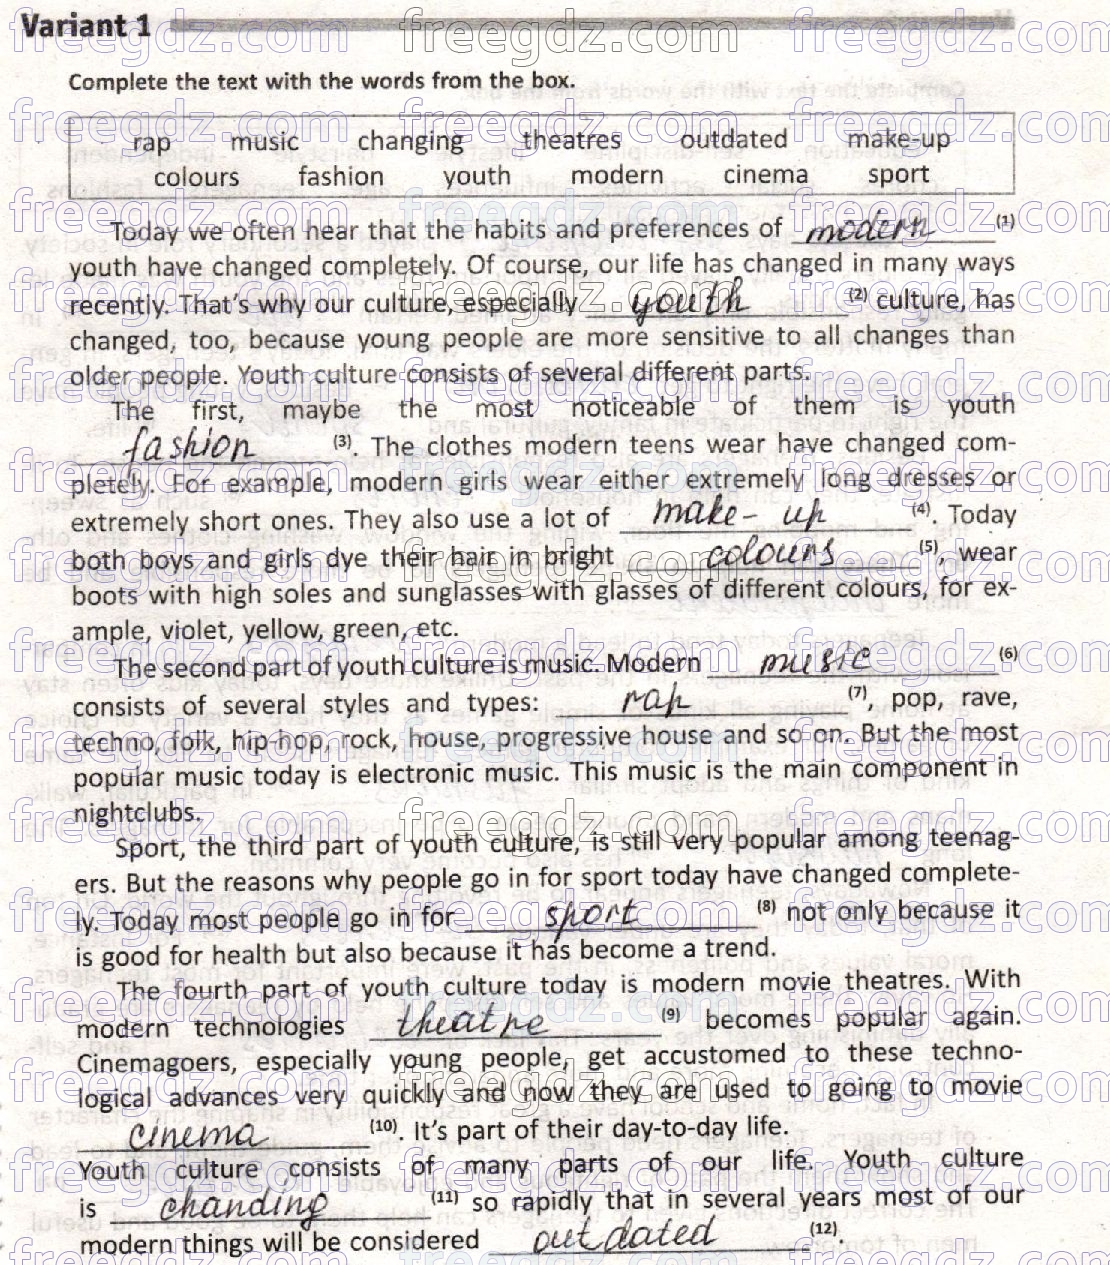 Variant 1
Complete the text with the words from the box.
rap music changing theatres outdated make-up
colours fashion youth modern cinema sport
Today we often hear that the habits and preferences of modern (1)
youth have changed completely. Of course, our life has changed in many ways
recently. That's why our culture, especially youth (2) culture, has
changed, too, because young people are more sensitive to all changes than
older people. Youth culture consists of several different parts.
The first, maybe the most noticeable of them is youth
fashion (3). The clothes modern teens wear have changed com-
pletely. For example, modern girls wear either extremely long dresses or
extremely short ones. They also use a lot of make-up (4). Today
both boys and girls dye their hair in bright colours (5), wear
boots with high soles and sunglasses with glasses of different colours, for ex-
ample, violet, yellow, green, etc.
The second part of youth culture is music. Modern music (6)
consists of several styles and types: rap (7), pop, rave,
techno, folk, hip-hop, rock, house, progressive house and so on. But the most
popular music today is electronic music. This music is the main component in
nightclubs.
Sport, the third part of youth culture, is still very popular among teenag-
ers. But the reasons why people go in for sport today have changed complete-
ly. Today most people go in for sport (8) not only because it
is good for health but also because it has become a trend.
The fourth part of youth culture today is modern movie theatres. With
modern technologies theatre (9) becomes popular again.
Cinemagoers, especially young people, get accustomed to these techno-
logical advances very quickly and now they are used to going to movie
cinema (10). It's part of their day-to-day life.
Youth culture consists of many parts of our life. Youth culture
is chanding (11) so rapidly that in several years most of our
modern things will be considered outdated (12).